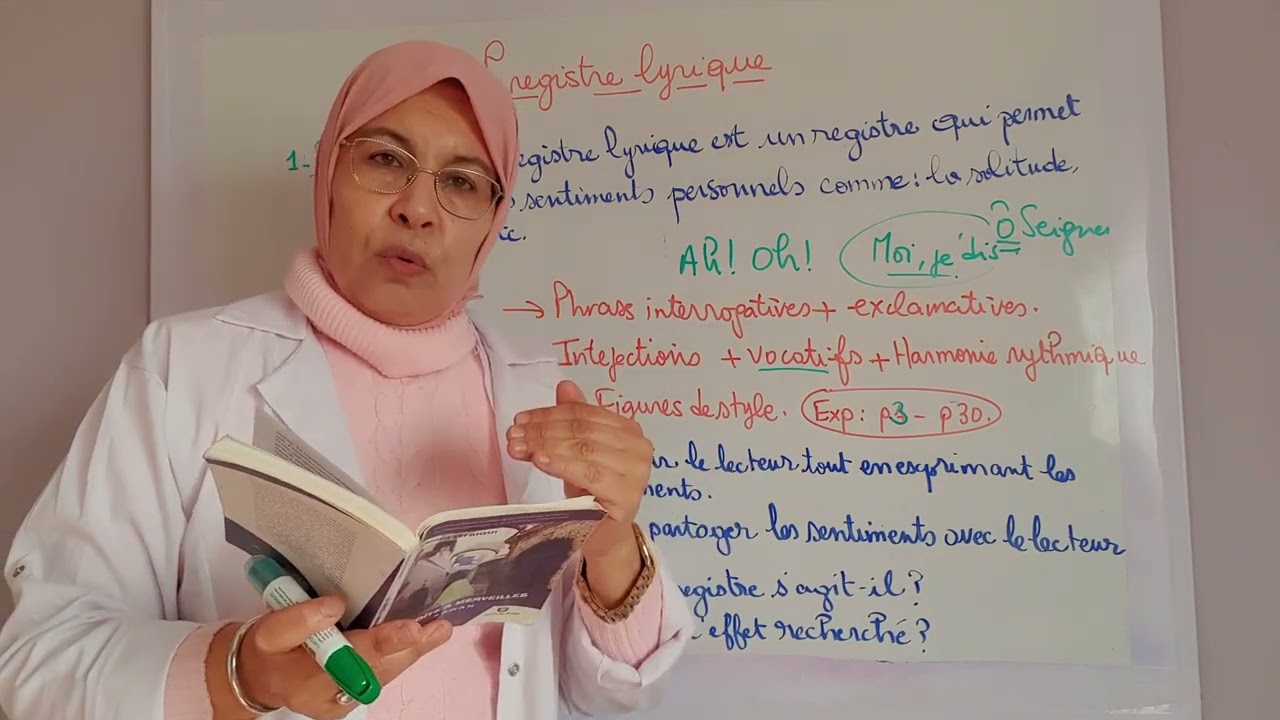 registre lyrique
1-
egistre lyrique est un registre qui permet
sentiments personnels comme : la solitude,
Ah! Oh! Moi, je dis Ô Seigneu
→ Phrases interrogatives + exclamatives.
Intejections + vocatifs + Harmonie rythmique
Figures de style. Exp: p3 - p30.
ir le lecteur tout en exprimant les
ments.
partager les sentiments avec le lecteur
egistre s'agit-il ?
l'effet recherché ?
& MERVEILLES